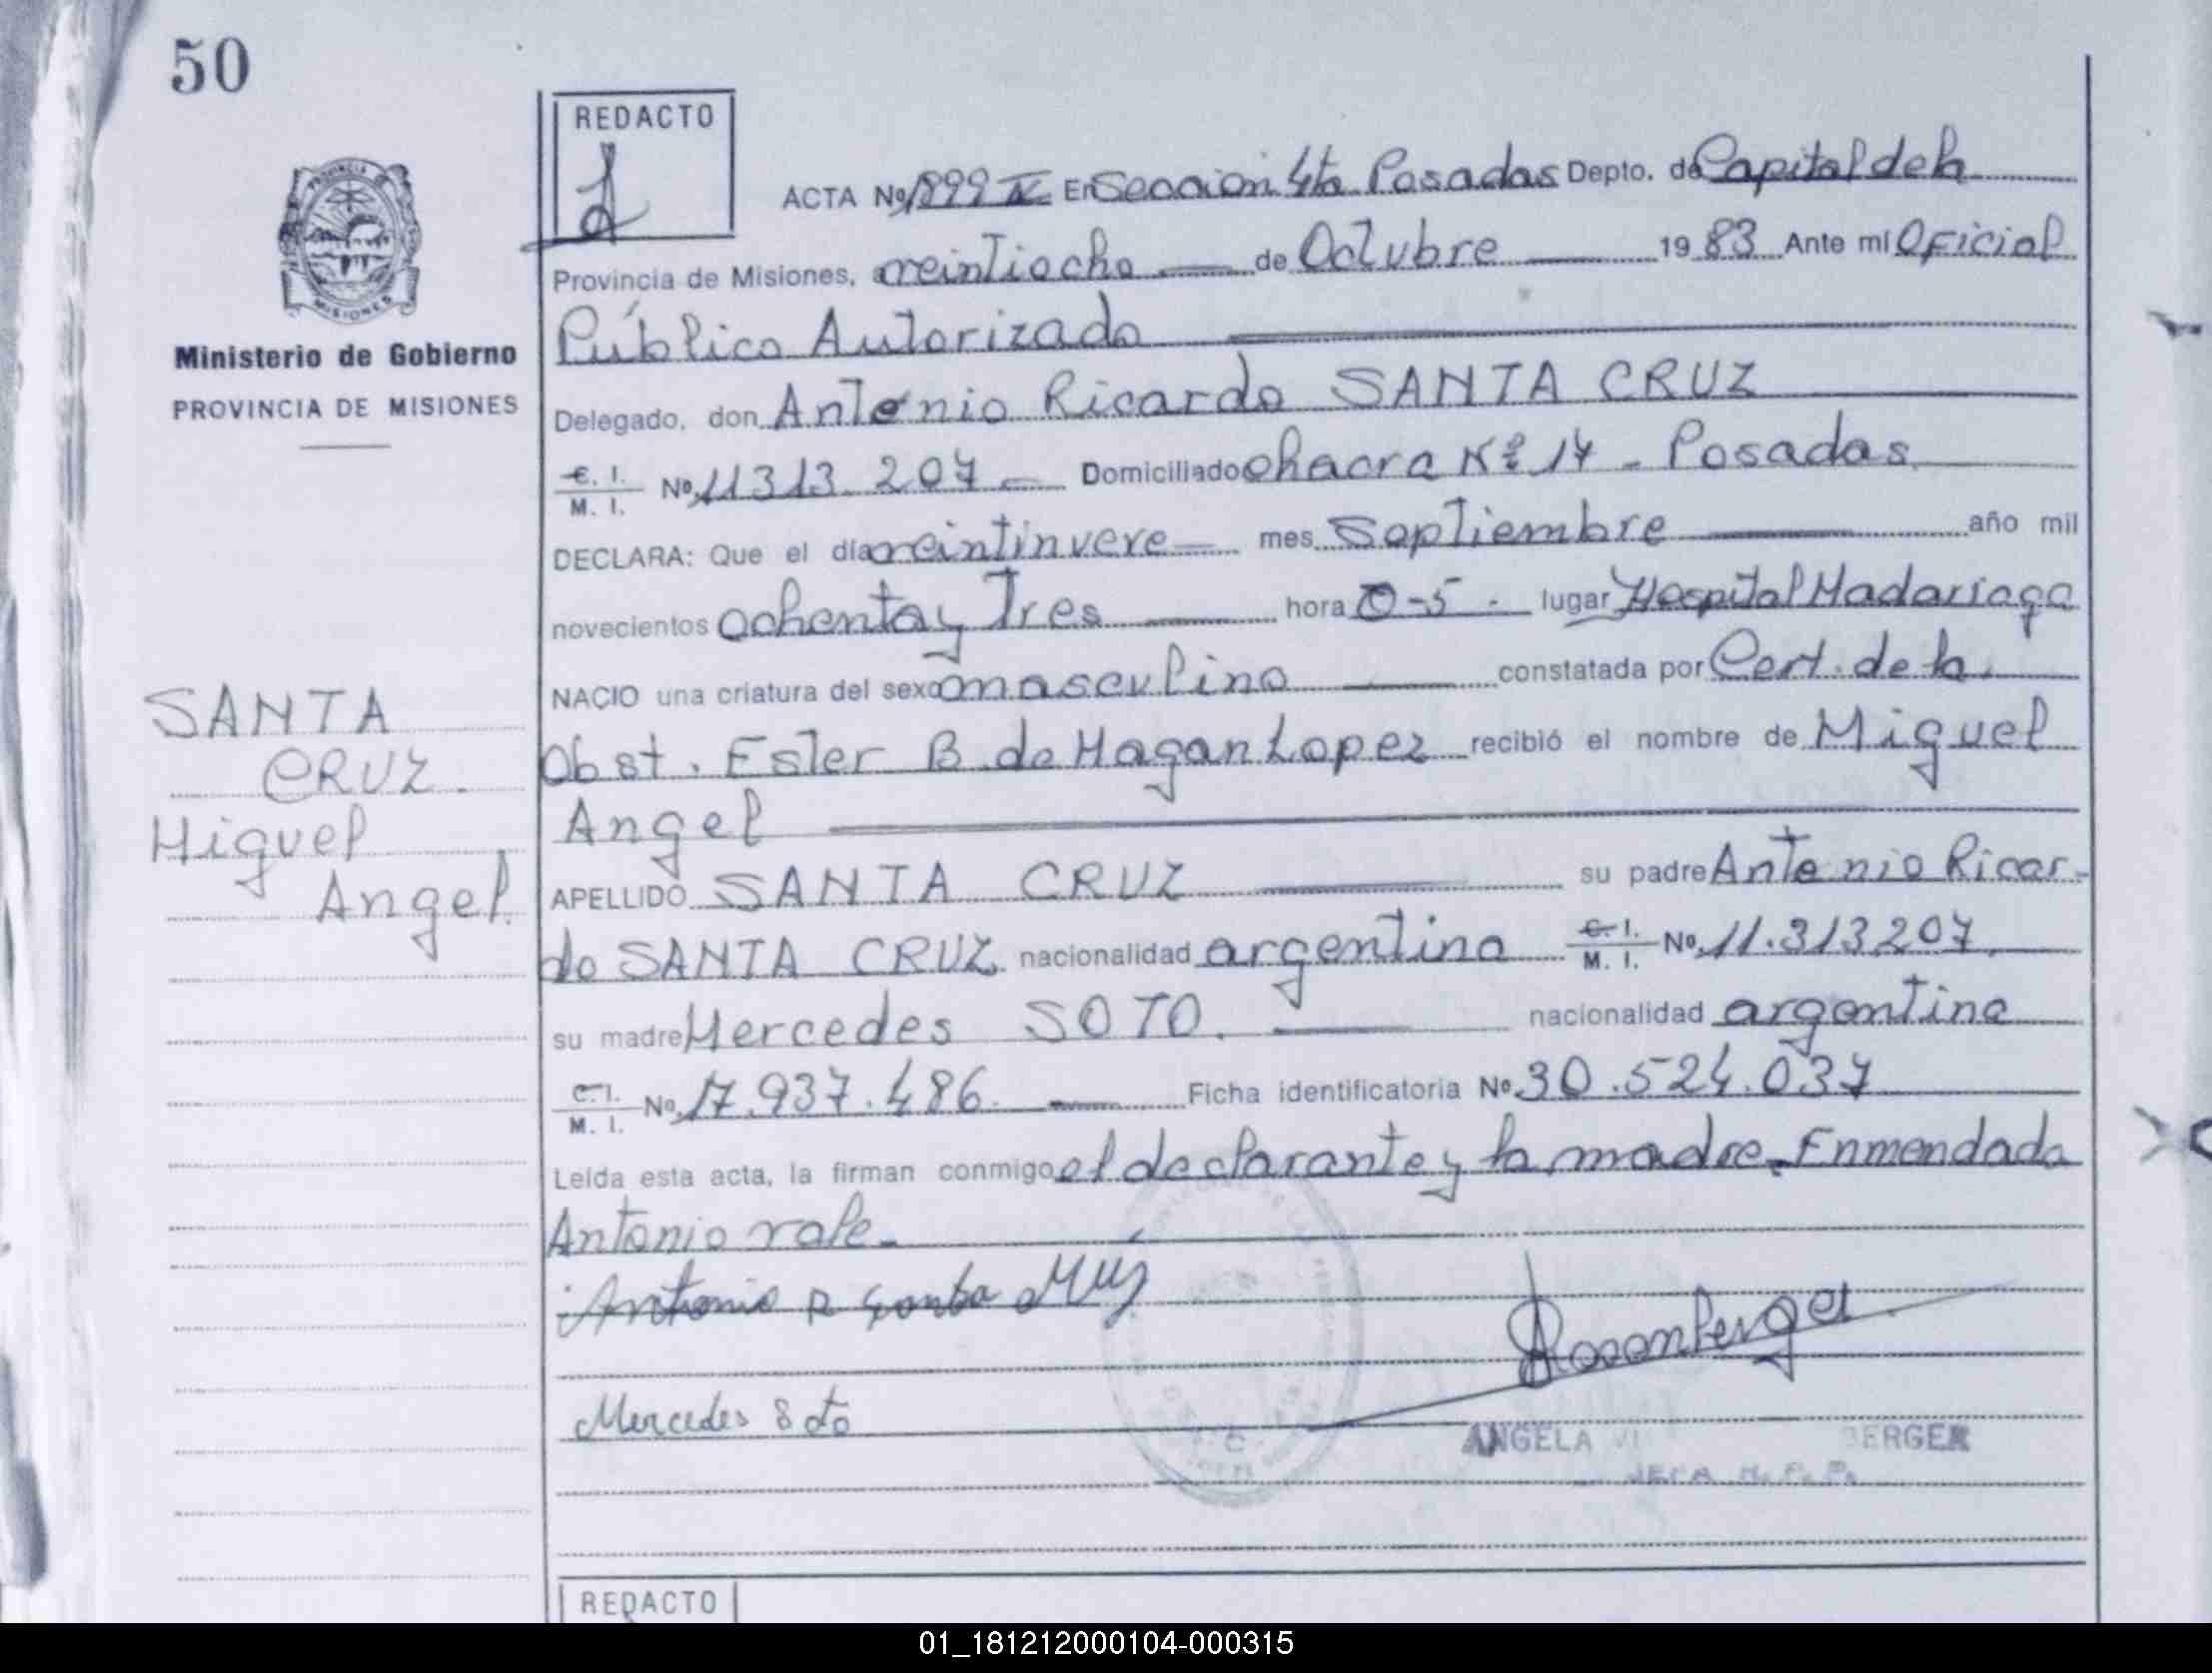 50
REDACTO
PROVINCIA DE
MISIONES
Ministerio de Gobierno
PROVINCIA DE MISIONES
SANTA
CRUZ.
Miguel
Angel.
ACTA Nº 1899 IV En Sección 4ta Posadas Depto. de Capital de la
Provincia de Misiones, a veintiocho de Octubre 1983 Ante mí Oficial
Público Autorizado
Delegado, don Antonio Ricardo SANTA CRUZ
C. I. M. I. Nº 11313.207 Domiciliado chacra Nº 14 - Posadas
DECLARA: Que el día veintinueve mes Septiembre año mil
novecientos ochenta y Tres hora 0-5 - lugar Hospital Madariaga
NACIO una criatura del sexo masculino constatada por Cert. de la
Obst. Ester B. de Hagan Lopez recibió el nombre de Miguel
Angel
APELLIDO SANTA CRUZ su padre Antonio Ricar-
do SANTA CRUZ nacionalidad argentina C. I. M. I. Nº 11.313.207
su madre Mercedes SOTO. nacionalidad argentina
C. I. M. I. Nº 17.937.486. Ficha identificatoria Nº 30.524.037
Leída esta acta, la firman conmigo el declarante y la madre. Enmendada
Antonio vale.-
Antonio R Santa Cruz
Rosenberger
Mercedes Soto
ANGELA VI BERGER
JEFA R. P. P.
REDACTO
01_181212000104-000315